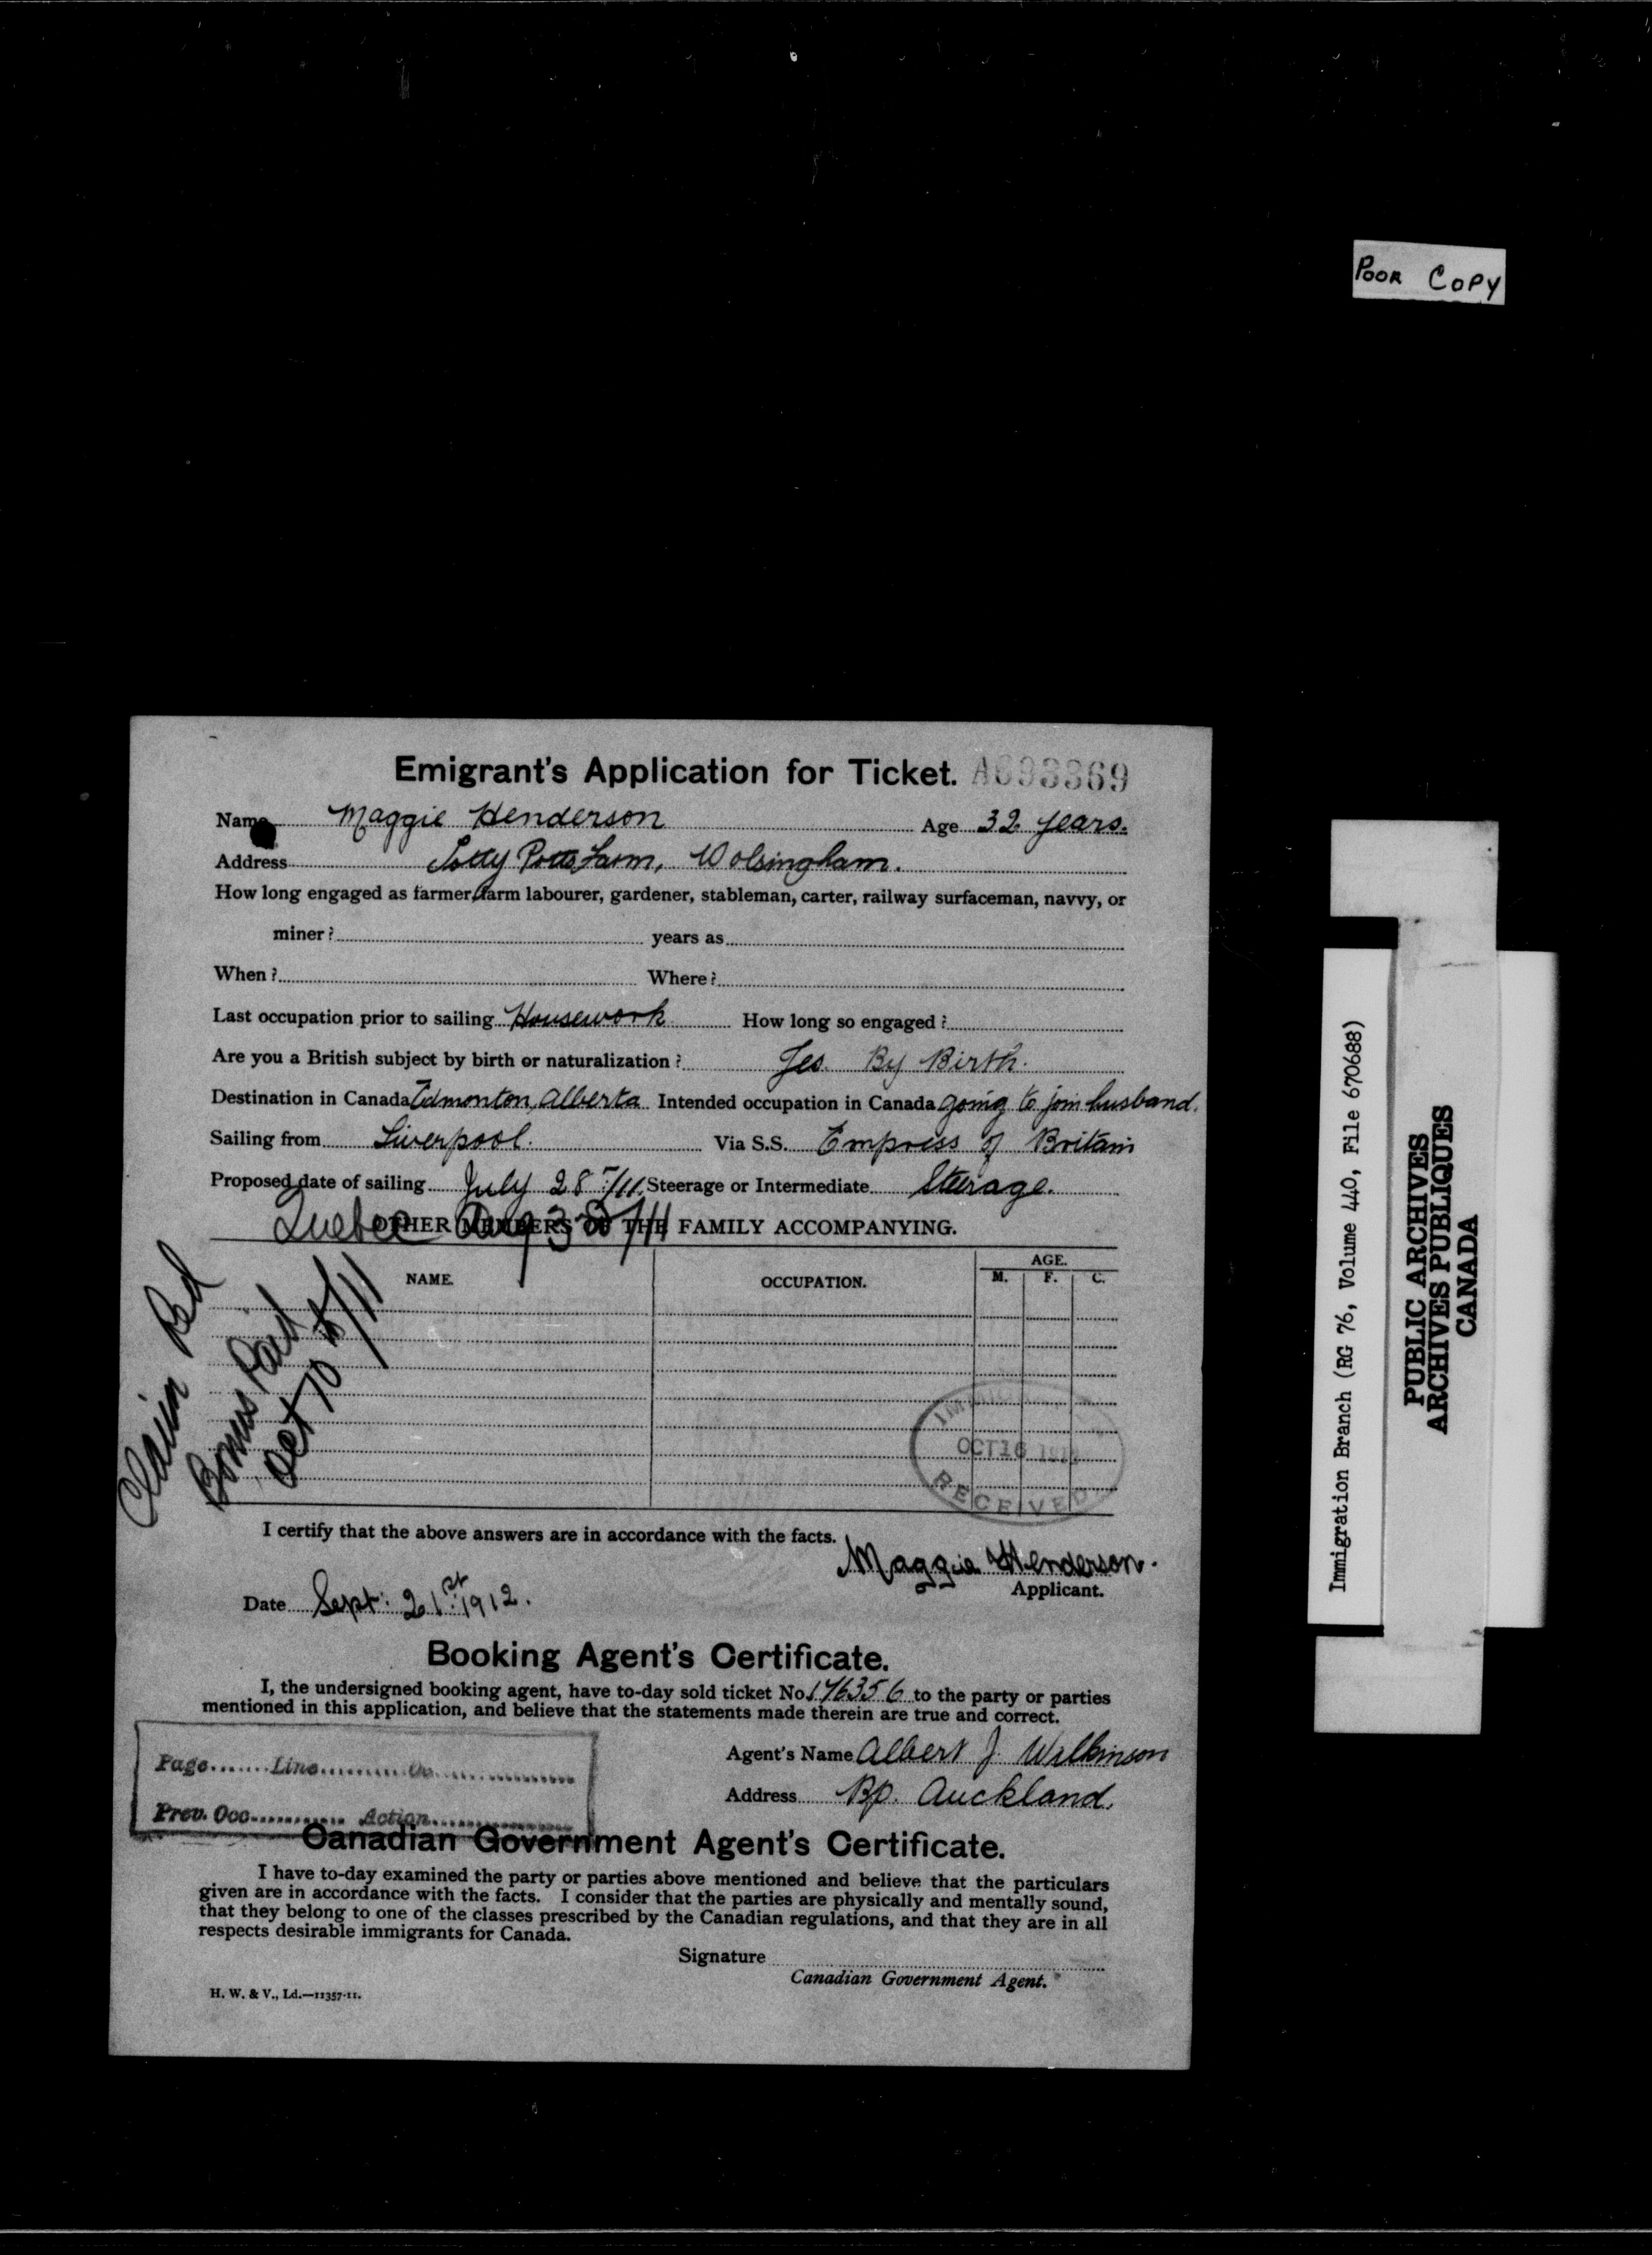 POOR COPY
Emigrant's Application for Ticket. A693369
Name Maggie Henderson Age 32 years.
Address Totty Potts Farm, Wolsingham.
How long engaged as farmer, farm labourer, gardener, stableman, carter, railway surfaceman, navvy, or
miner? years as
When? Where?
Last occupation prior to sailing Housework How long so engaged?
Are you a British subject by birth or naturalization? Yes. By Birth.
Destination in Canada Edmonton, Alberta Intended occupation in Canada going to join husband.
Sailing from Liverpool. Via S.S. Empress of Britain
Proposed date of sailing July 28th/11. Steerage or Intermediate Steerage.
Quebec Aug 3rd/11
OTHER MEMBERS OF THE FAMILY ACCOMPANYING.
NAME. OCCUPATION. AGE.
M. F. C.
Claim
Bonus Paid
Oct 10/11
OCT 16
RECEIVED
I certify that the above answers are in accordance with the facts.
Maggie Henderson.
Applicant.
Date Sept: 21st 1912.
Booking Agent's Certificate.
I, the undersigned booking agent, have to-day sold ticket No. 176356 to the party or parties
mentioned in this application, and believe that the statements made therein are true and correct.
Page Line On
Prev. Occ. Action
Agent's Name Albert J. Wilkinson
Address Bp. Auckland.
Canadian Government Agent's Certificate.
I have to-day examined the party or parties above mentioned and believe that the particulars
given are in accordance with the facts. I consider that the parties are physically and mentally sound,
that they belong to one of the classes prescribed by the Canadian regulations, and that they are in all
respects desirable immigrants for Canada.
Signature
Canadian Government Agent.
H. W. & V., Ld.—11357-11.
Immigration Branch (RG 76, Volume 440, File 670688)
PUBLIC ARCHIVES
ARCHIVES PUBLIQUES
CANADA